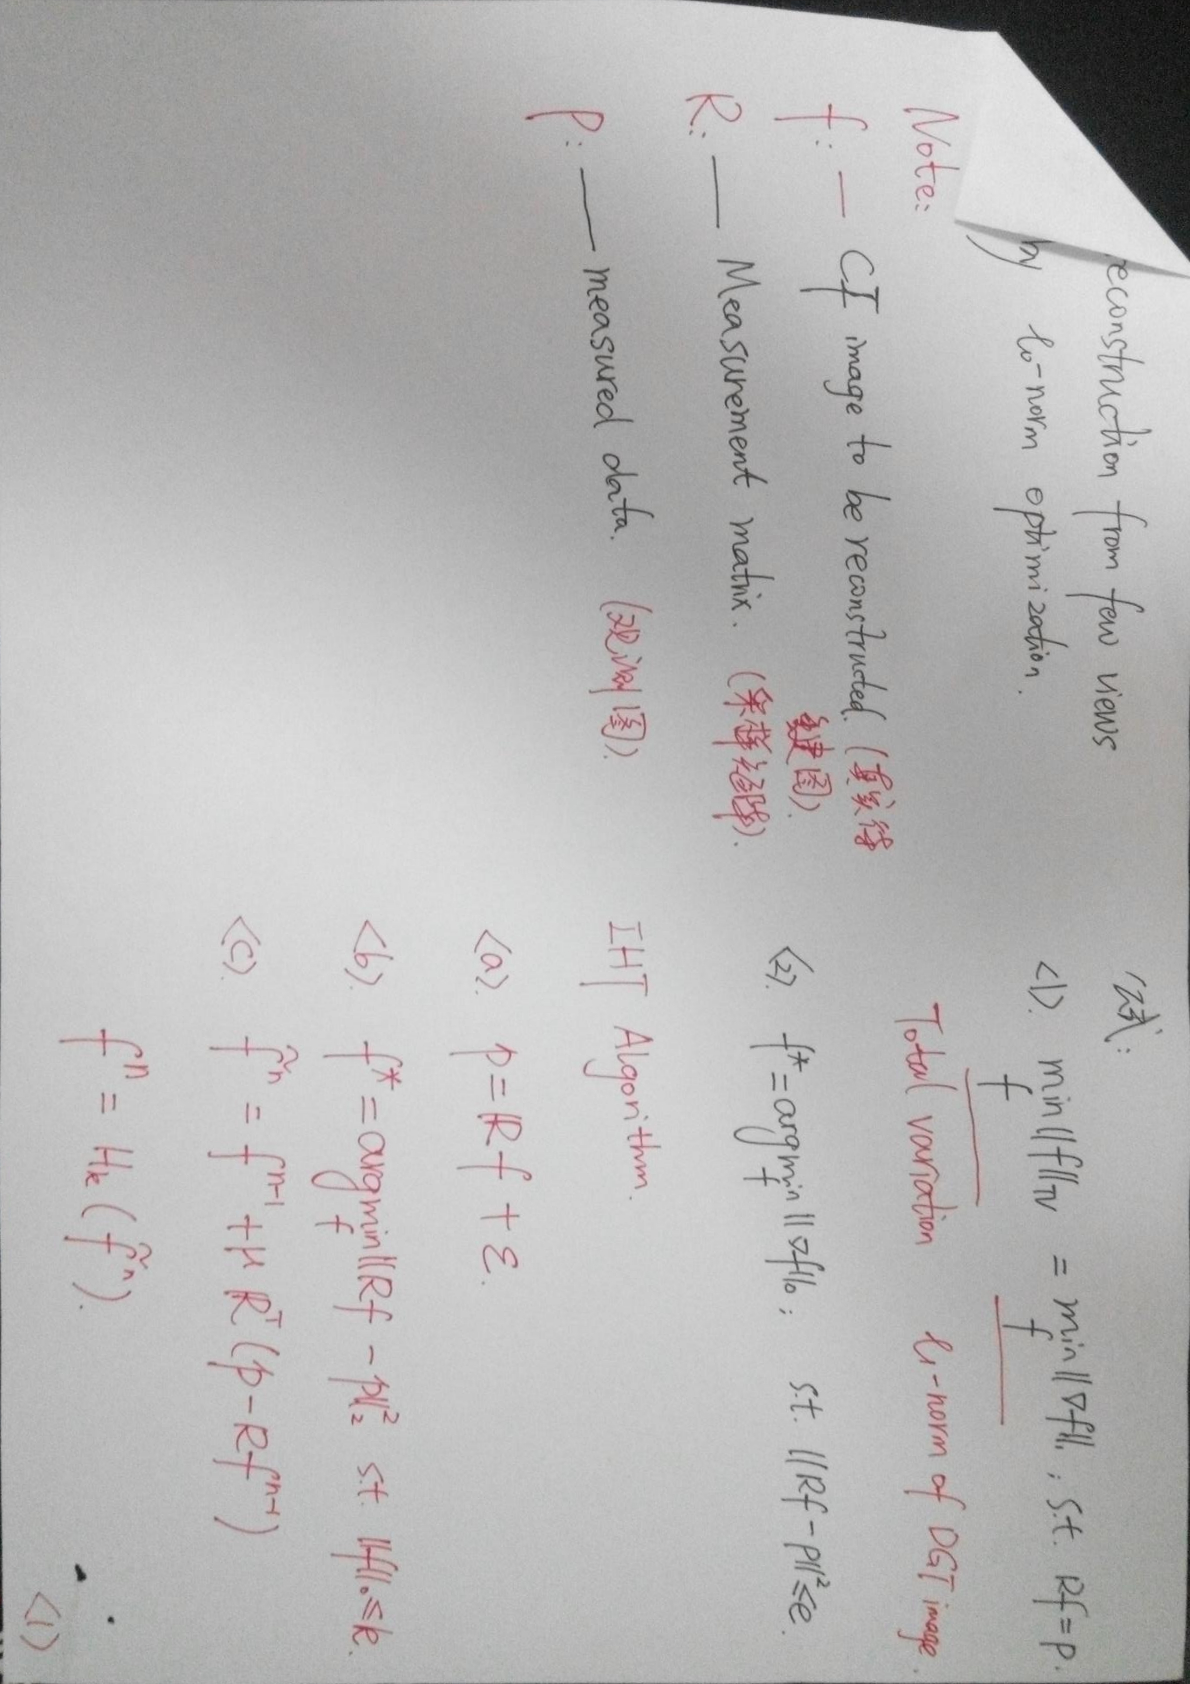 reconstruction from few views
by l₀-norm optimization.
Note:
f: — CT image to be reconstructed. (真实待
重建图).
R: — Measurement matrix. (采样矩阵).
P: — measured data. (观测图).
公式:
<1>. min_f ||f||_TV = min_f ||∇f||₁ ; s.t. Rf=p.
Total variation l₁-norm of DGT image.
<2>. f* = argmin_f ||∇f||₀ ; s.t. ||Rf-p||² ≤ e.
IHT Algorithm.
<a>. p = Rf + ε.
<b>. f* = argmin_f ||Rf - p||₂² s.t. ||f||₀ ≤ k.
<c>. f̃ⁿ = fⁿ⁻¹ + μ Rᵀ(p - Rfⁿ⁻¹)
fⁿ = H_k(f̃ⁿ).
<1>